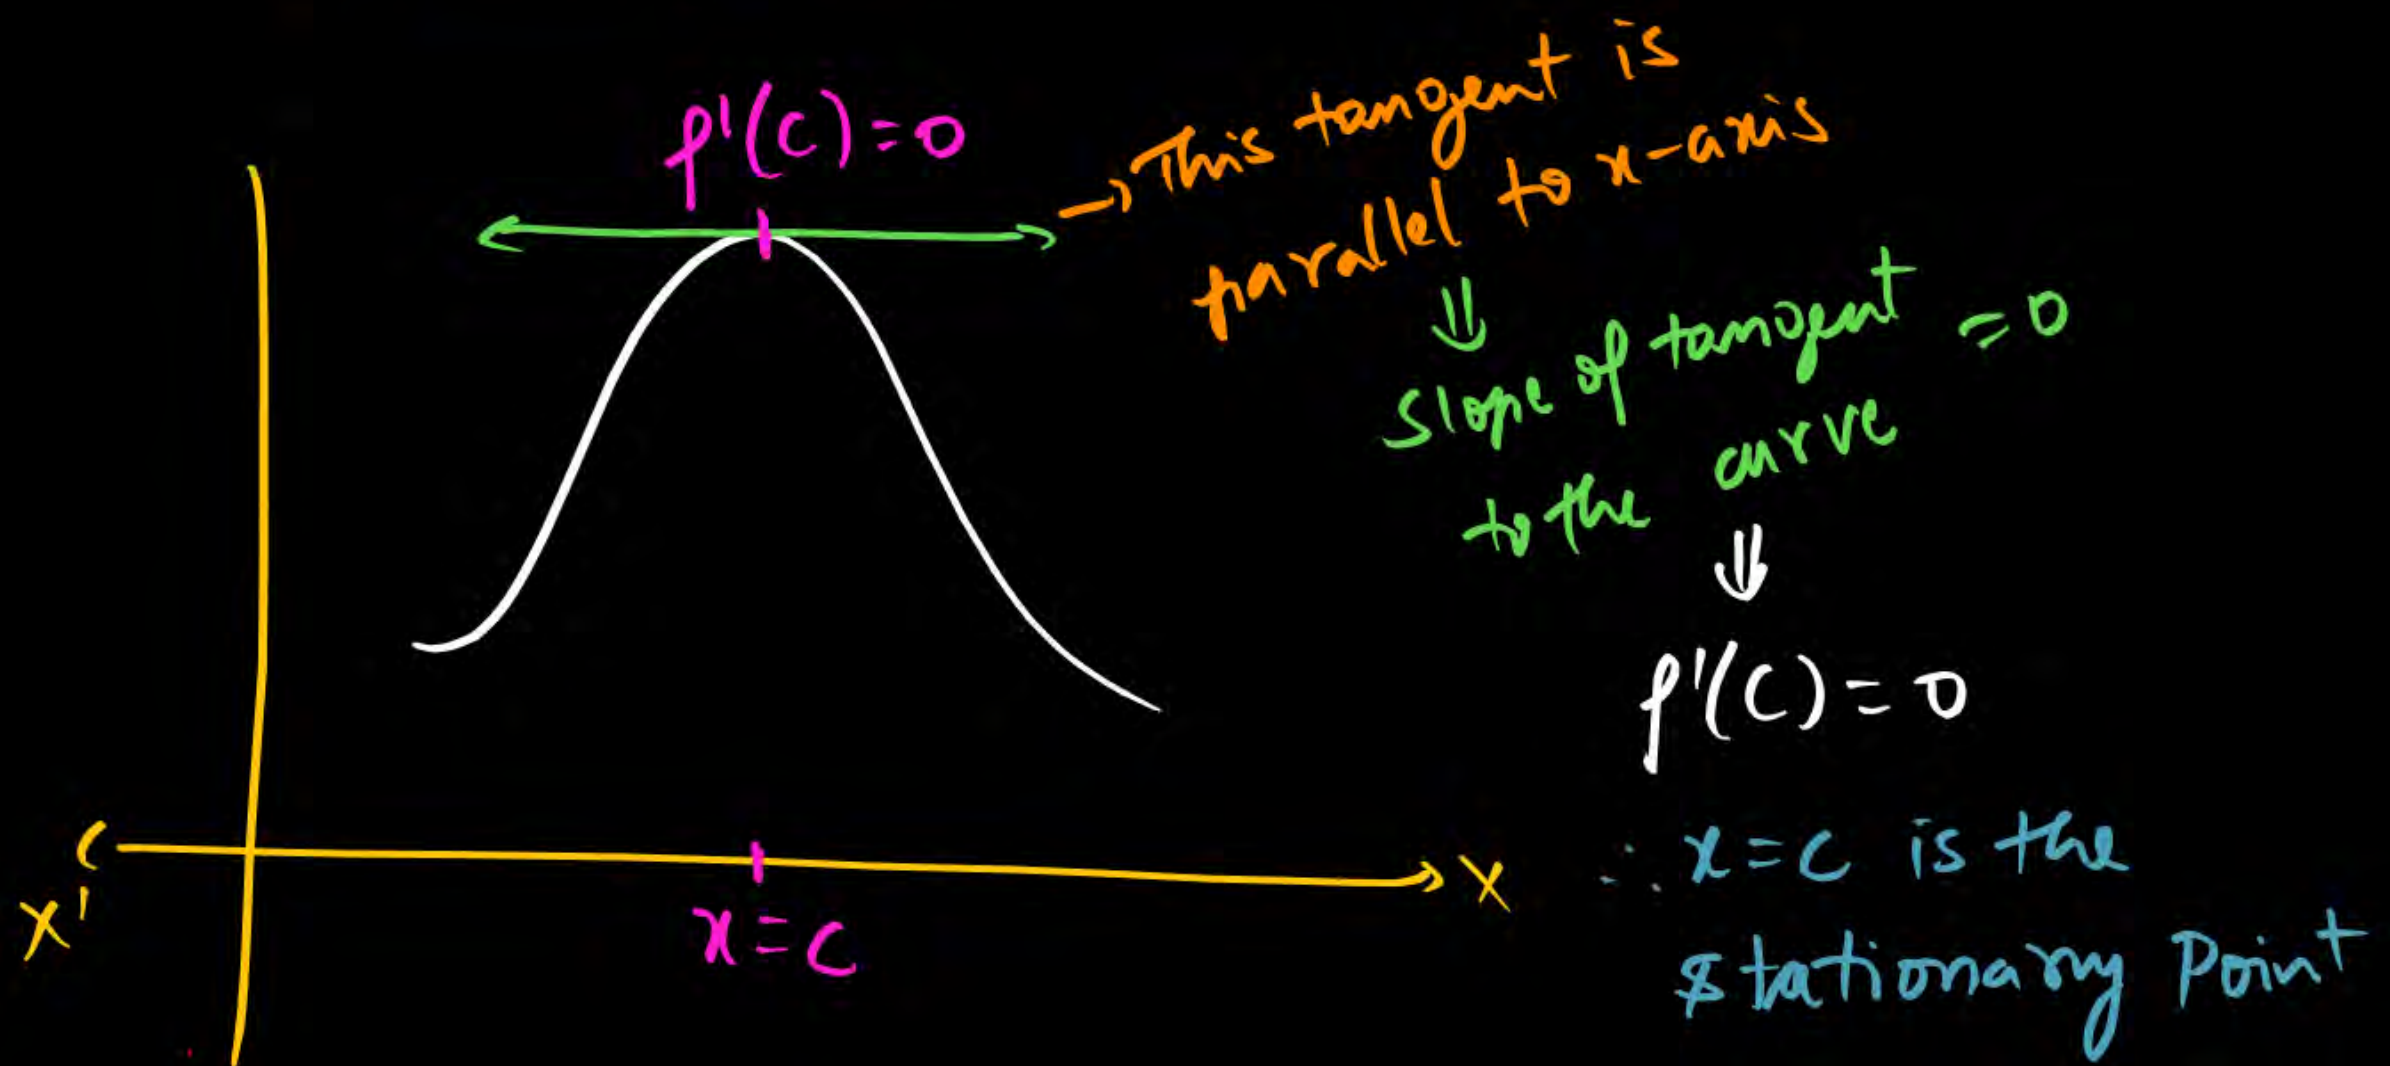 f'(c)=0
→ This tangent is
parallel to x-axis
⇓
Slope of tangent = 0
to the curve
⇓
f'(c)=0
∴ x=c is the
stationary Point
X'
X
x=c